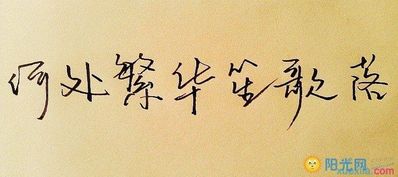 何处繁华笙歌落
阳光网